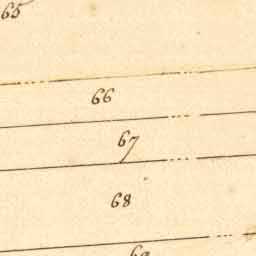 65
66
67
68
69